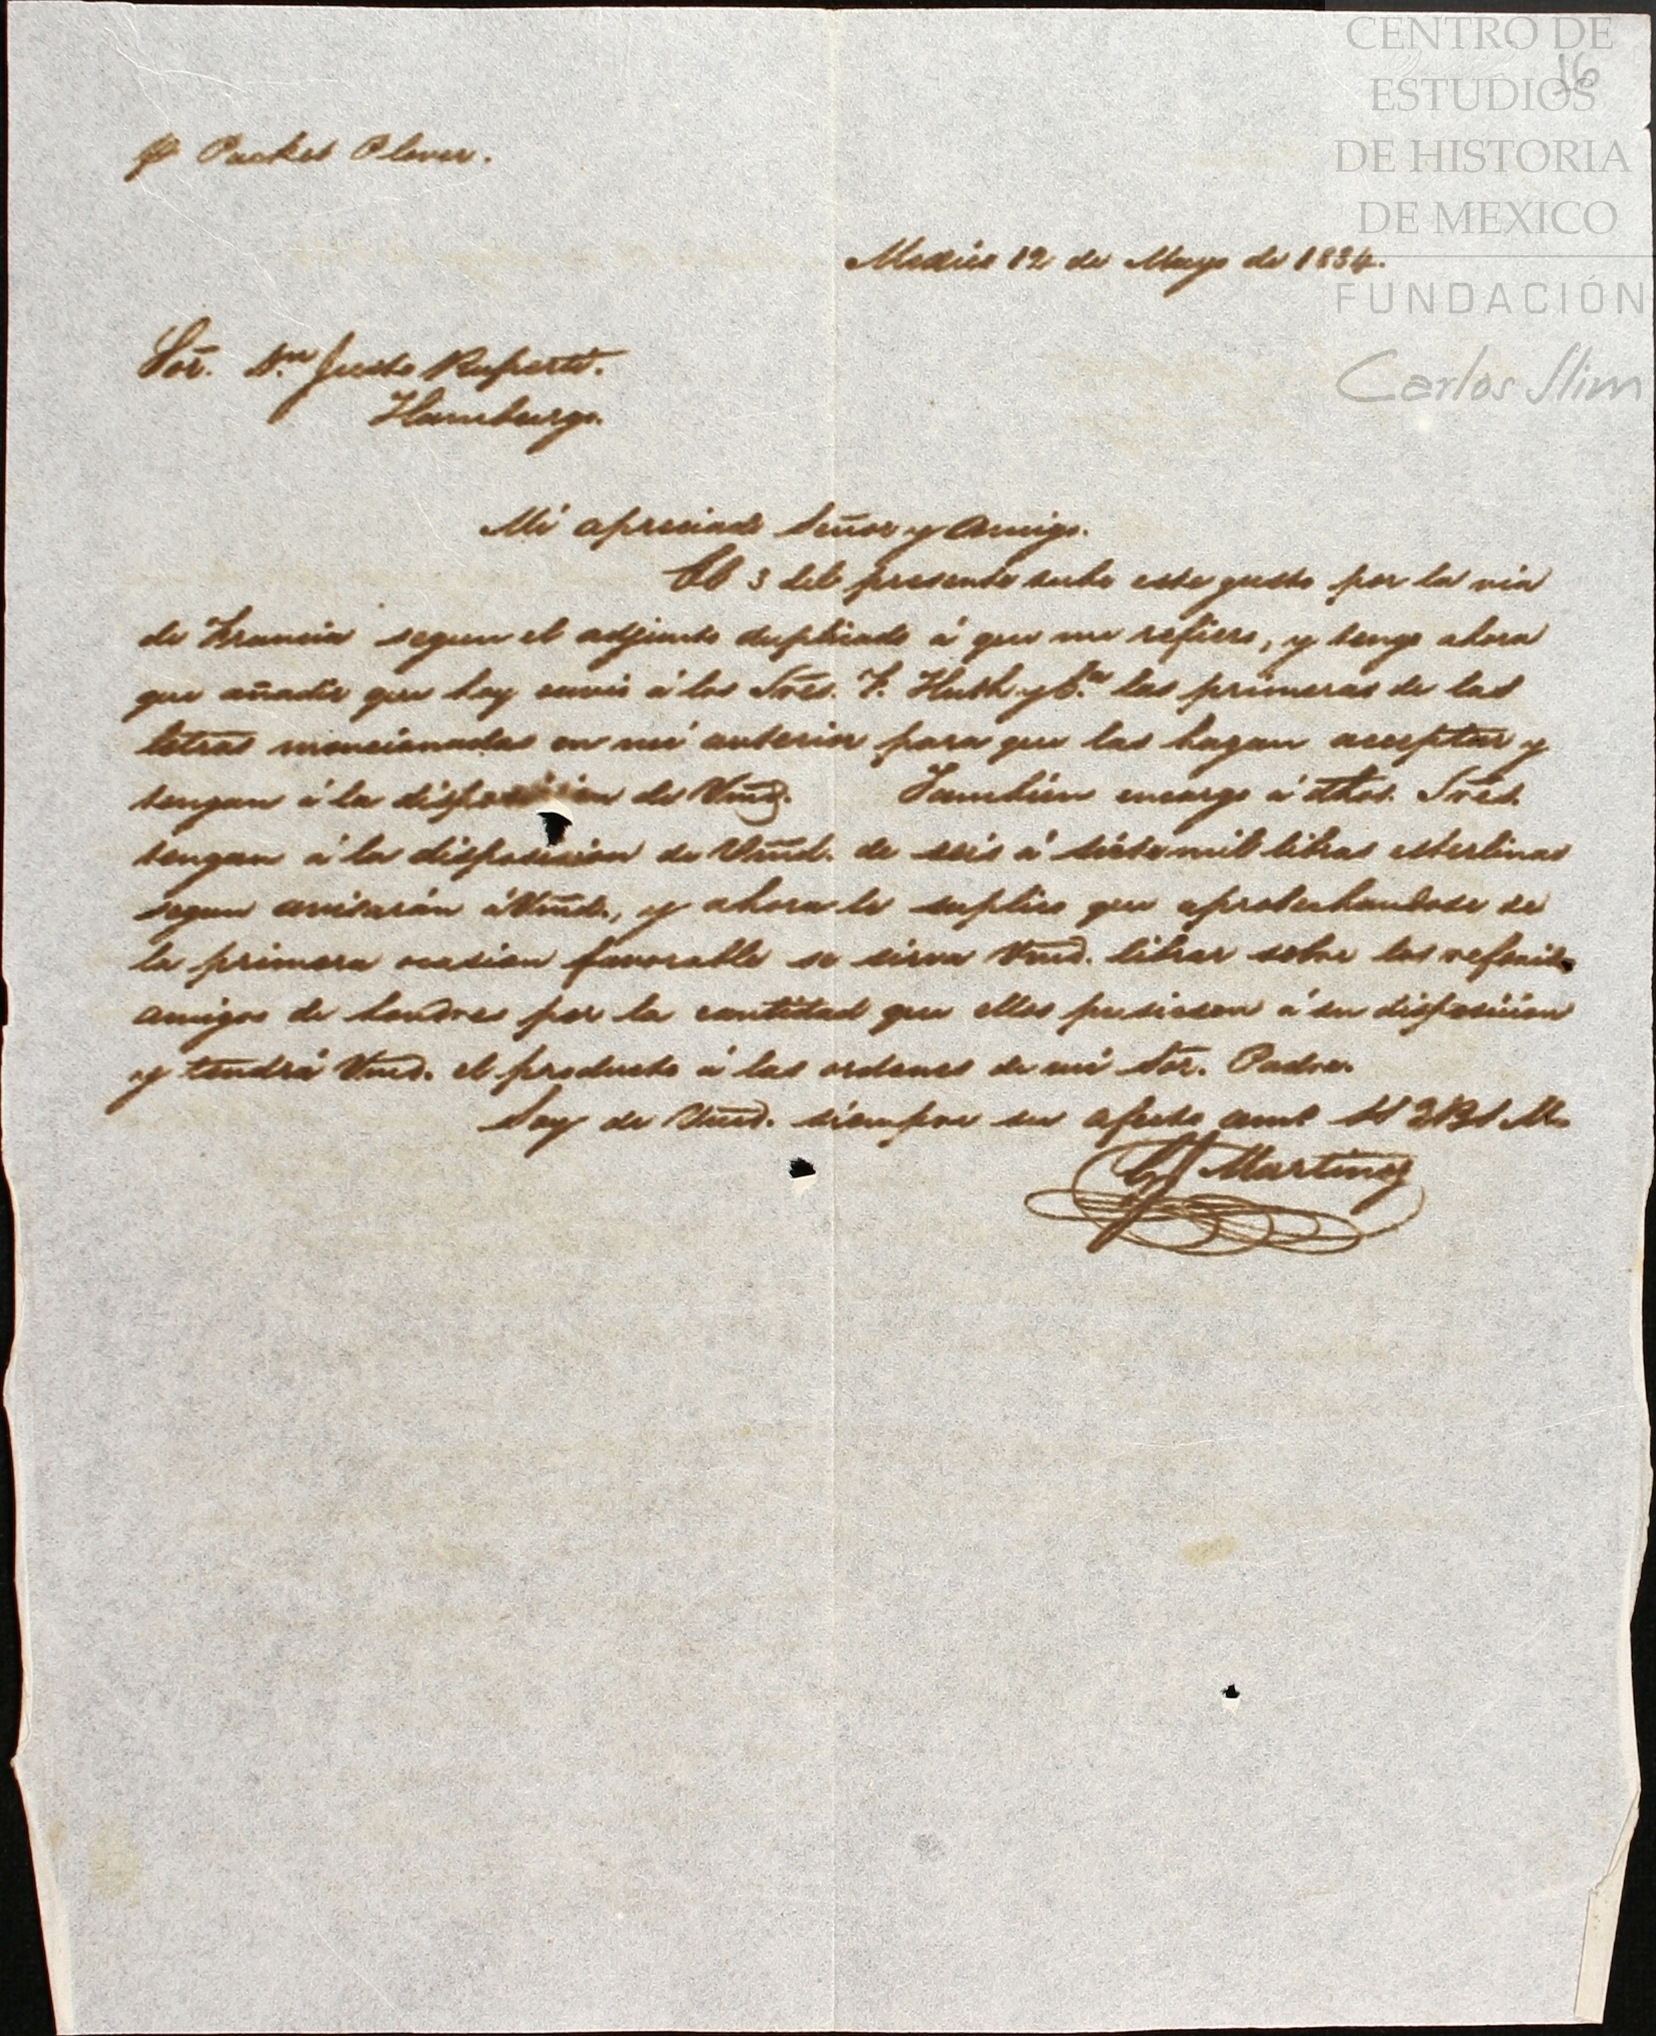 CENTRO DE
ESTUDIOS
DE HISTORIA
DE MEXICO
FUNDACIÓN
Carlos Slim
16
p Packet Plover.
Mexico 12 de Mayo de 1834.
Sor. Dn Justo Ruperti.
Hamburgo.
Mi apreciado Señor y Amigo.
El 3 del presente tube este gusto por la via
de Francia segun el adjunto duplicado á que me refiero, y tengo ahora
que añadir que hoy envio á los Sres. F. Huth y Ca las primeras de las
letras mencionadas en mi anterior para que las hagan aceptar y
tengan á la disposicion de Vmd. Tambien encargo á dhos. Sres.
tengan á la disposicion de Vmd. de seis á siete mil libras esterlinas
segun avisarán á Vmd., y ahora le suplico que aprobechandose de
la primera ocasion favorable se sirva Vmd. librar sobre los referidos
amigos de Londres por la cantidad que ellos pusiesen á su disposicion
y tendrá Vmd. el producto á las ordenes de mi Sor. Padre.
Soy de Vmd. siempre su afecto amo
Martinez